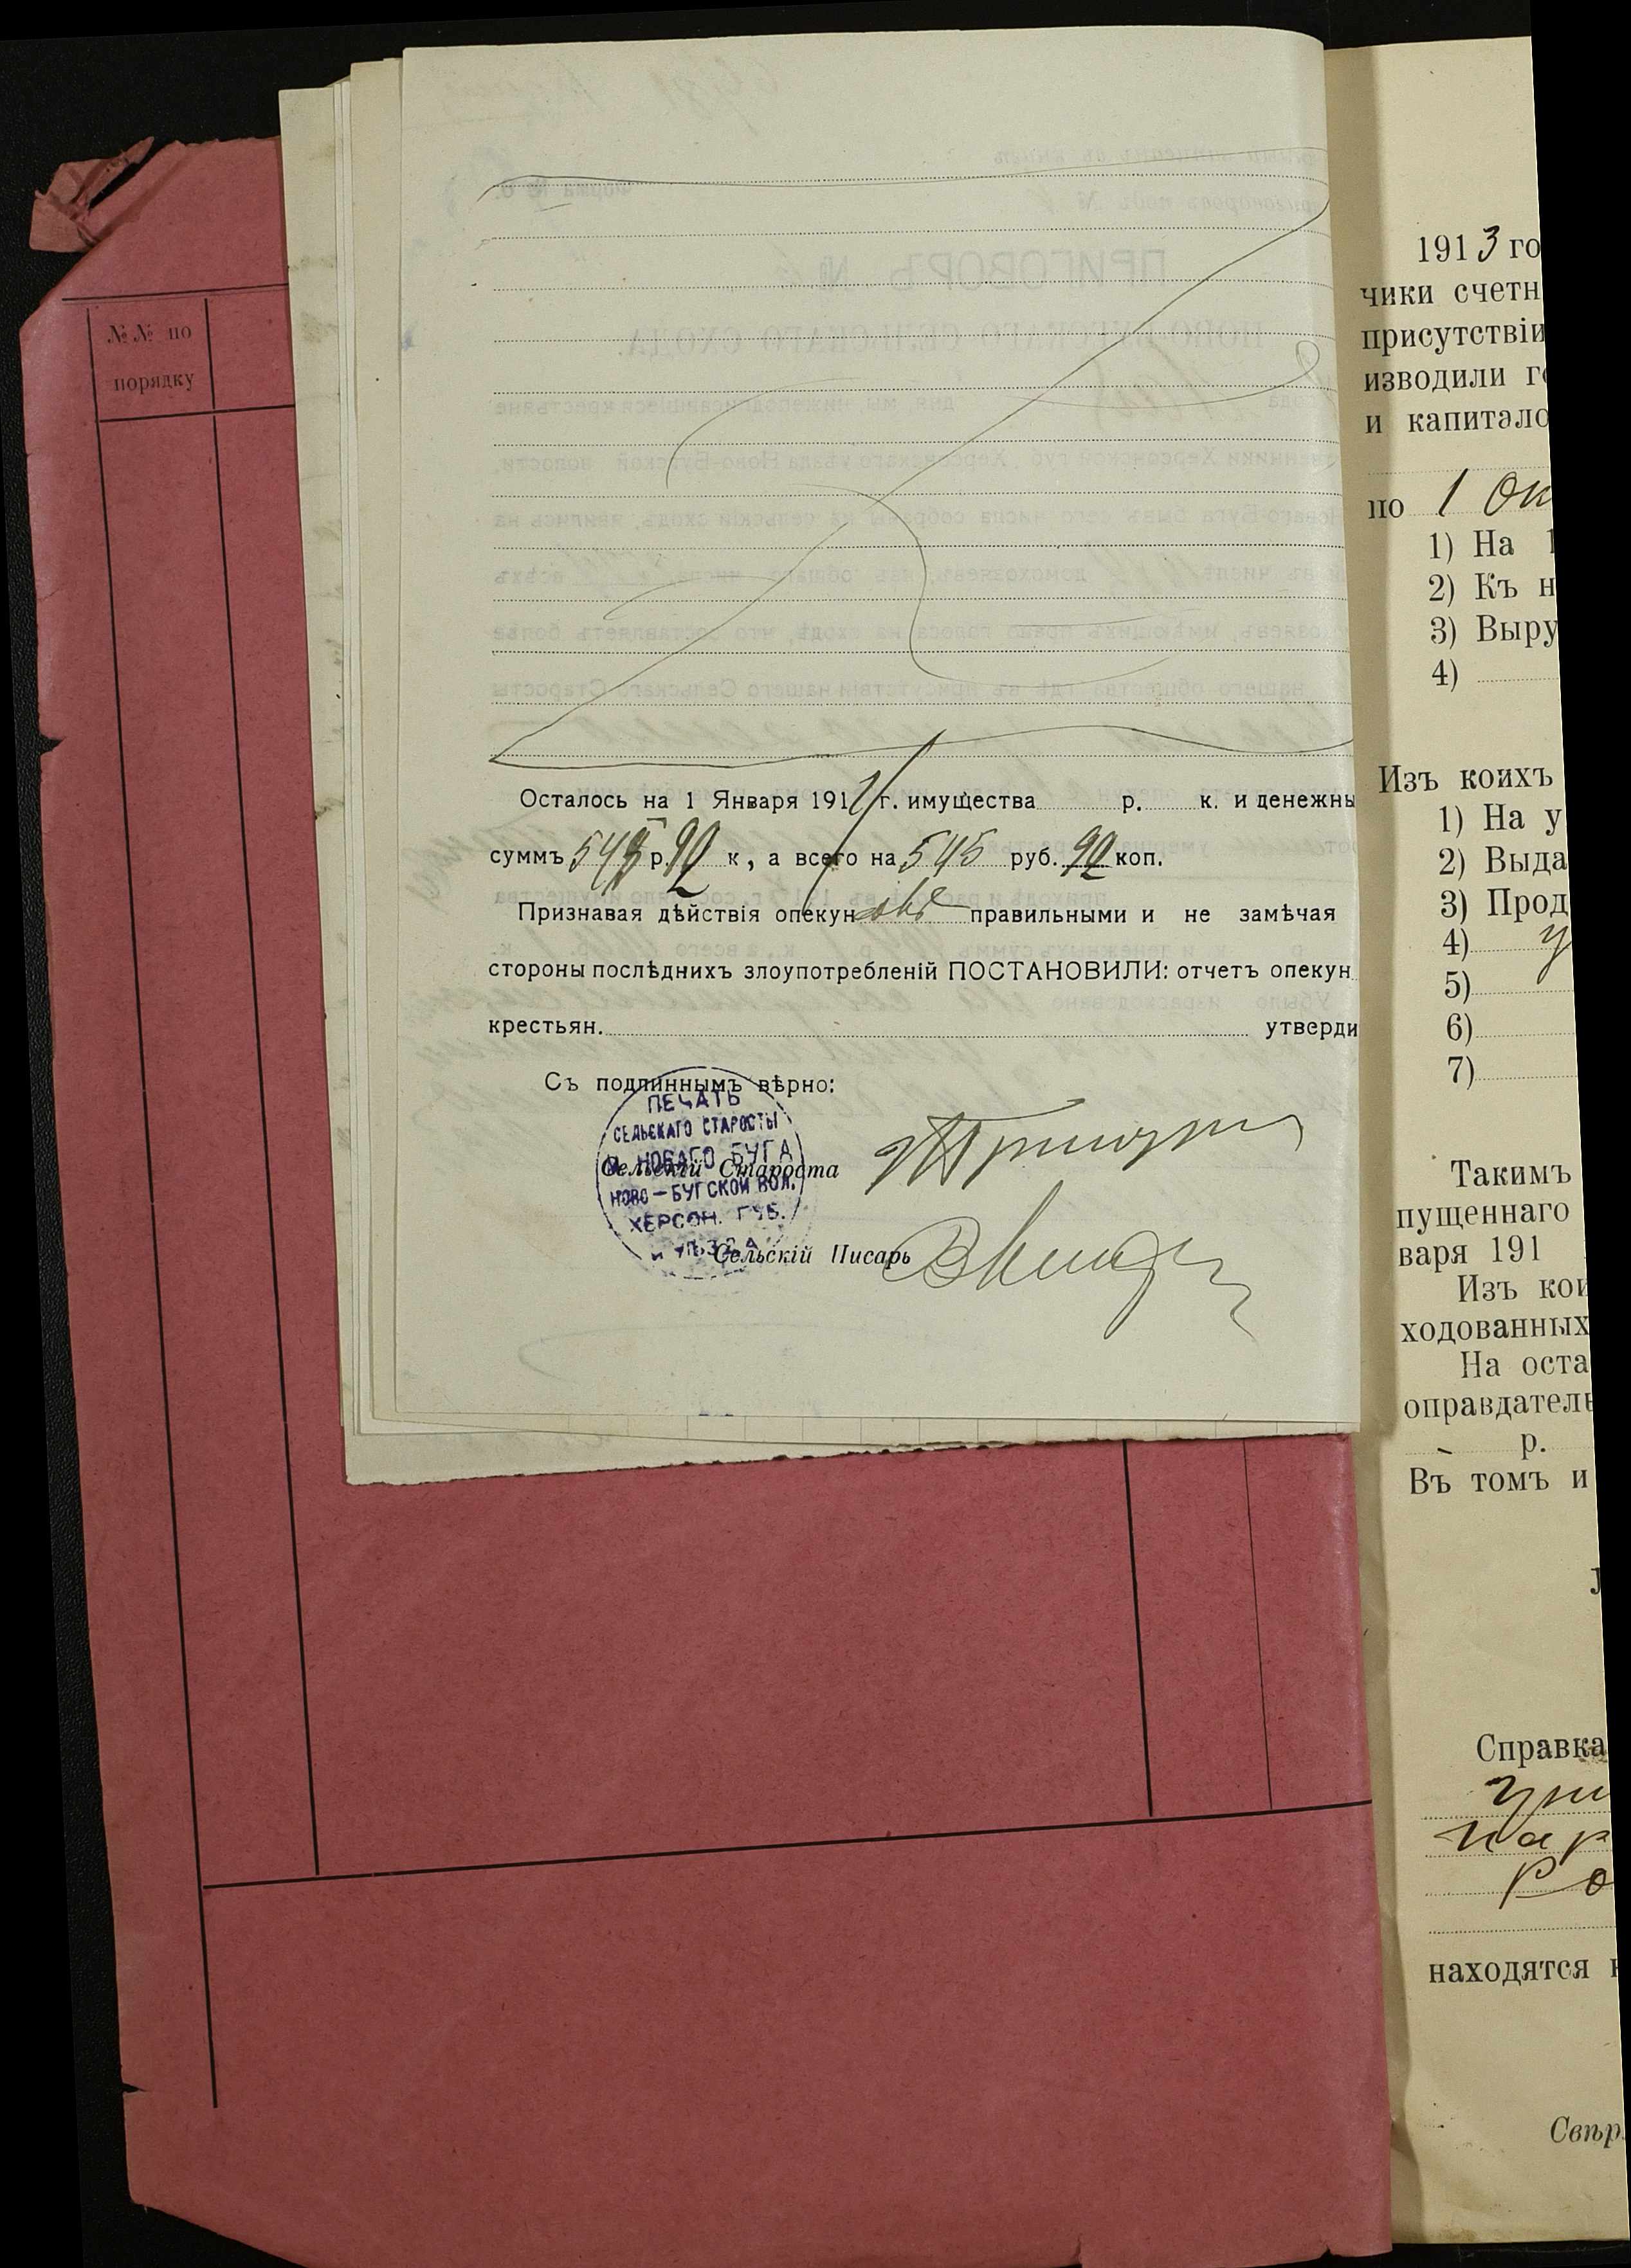 №№ по
порядку
Осталось на 1 Января 191 г. имущества р. к. и денежны
суммъ 545 р. 92 к, а всего на 545 руб. 92 коп.
Признавая дѣйствія опекуновъ правильными и не замѣчая
стороны послѣднихъ злоупотребленій ПОСТАНОВИЛИ: отчетъ опекун
крестьян. утверди
Съ подлиннымъ вѣрно:
ПЕЧАТЬ
СЕЛЬСКАГО СТАРОСТЫ
НОВАГО БУГА
НОВО-БУГСКОЙ ВОЛ.
ХЕРСОН. ГУБ.
и УѢЗДА
Сельскій Староста
Сельскій Писарь
1913 го
чики счетн
присутствіи
изводили го
и капитало
по 1 Ок
1) На 1
2) Къ н
3) Выру
4)
Изъ коихъ
1) На у
2) Выда
3) Прод
4) у
5)
6)
7)
Такимъ
пущеннаго
варя 191
Изъ кои
ходованных
На оста
оправдатель
р.
Въ томъ и
Справка
находятся
Свѣр